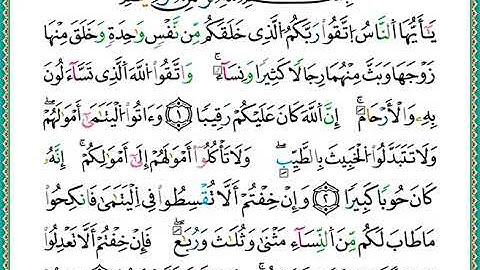 يَٰٓأَيُّهَا النَّاسُ اتَّقُوا رَبَّكُمُ الَّذِي خَلَقَكُم مِّن نَّفْسٍ وَٰحِدَةٍ وَخَلَقَ مِنْهَا
زَوْجَهَا وَبَثَّ مِنْهُمَا رِجَالًا كَثِيرًا وَنِسَآءً ۚ وَاتَّقُوا اللَّهَ الَّذِي تَسَآءَلُونَ
بِهِ وَالْأَرْحَامَ ۚ إِنَّ اللَّهَ كَانَ عَلَيْكُمْ رَقِيبًا ١ وَءَاتُوا الْيَتَٰمَىٰٓ أَمْوَٰلَهُمْ ۖ
وَلَا تَتَبَدَّلُوا الْخَبِيثَ بِالطَّيِّبِ ۖ وَلَا تَأْكُلُوٓا أَمْوَٰلَهُمْ إِلَىٰٓ أَمْوَٰلِكُمْ ۚ إِنَّهُ
كَانَ حُوبًا كَبِيرًا ٢ وَإِنْ خِفْتُمْ أَلَّا تُقْسِطُوا فِي الْيَتَٰمَىٰ فَانكِحُوا
مَا طَابَ لَكُم مِّنَ النِّسَآءِ مَثْنَىٰ وَثُلَٰثَ وَرُبَٰعَ ۖ فَإِنْ خِفْتُمْ أَلَّا تَعْدِلُوا